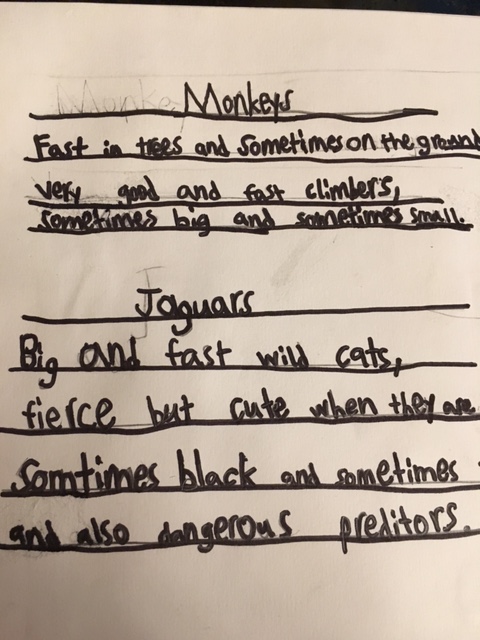 Monkeys
Fast in trees and sometimes on the ground
very good and fast climbers,
sometimes big and sometimes small.
Jaguars
Big and fast wild cats,
fierce but cute when they are
Somtimes black and sometimes
and also dangerous preditors.